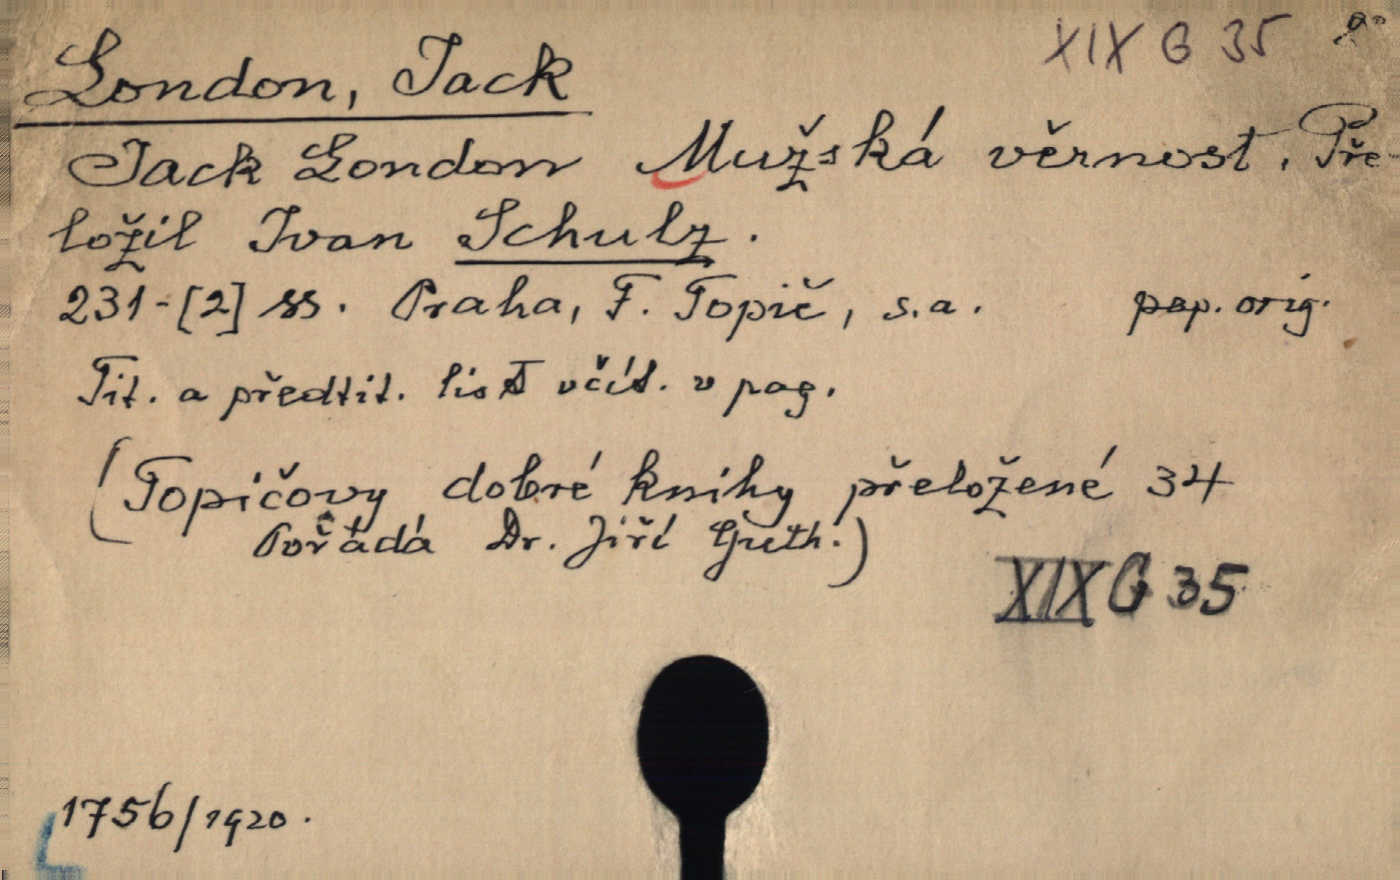 XIX G 35 8°
London, Jack
Jack London Mužská věrnost. Pře-
ložil Ivan Schulz.
231-[2] ss. Praha, F. Topič, s.a. pap. orig.
Tit. a předtit. list včít. v pag.
(Topičovy dobré knihy přeložené 34
Pořádá Dr. Jiří Guth.)
XIX G 35
1756/1920.